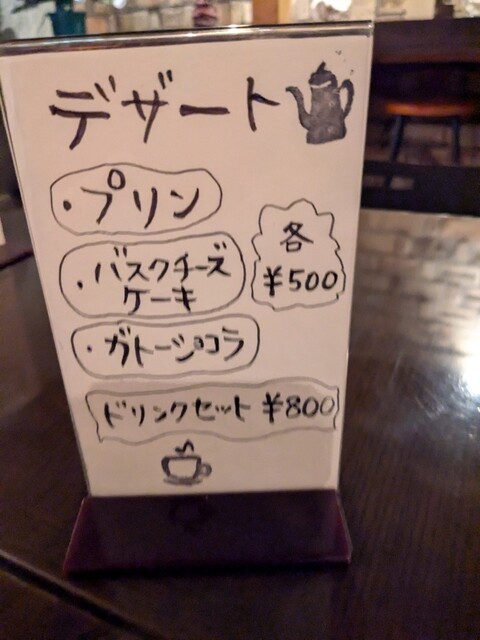 デザート
・プリン
・バスクチーズ
ケーキ
・ガトーショコラ
各
¥500
ドリンクセット ¥800